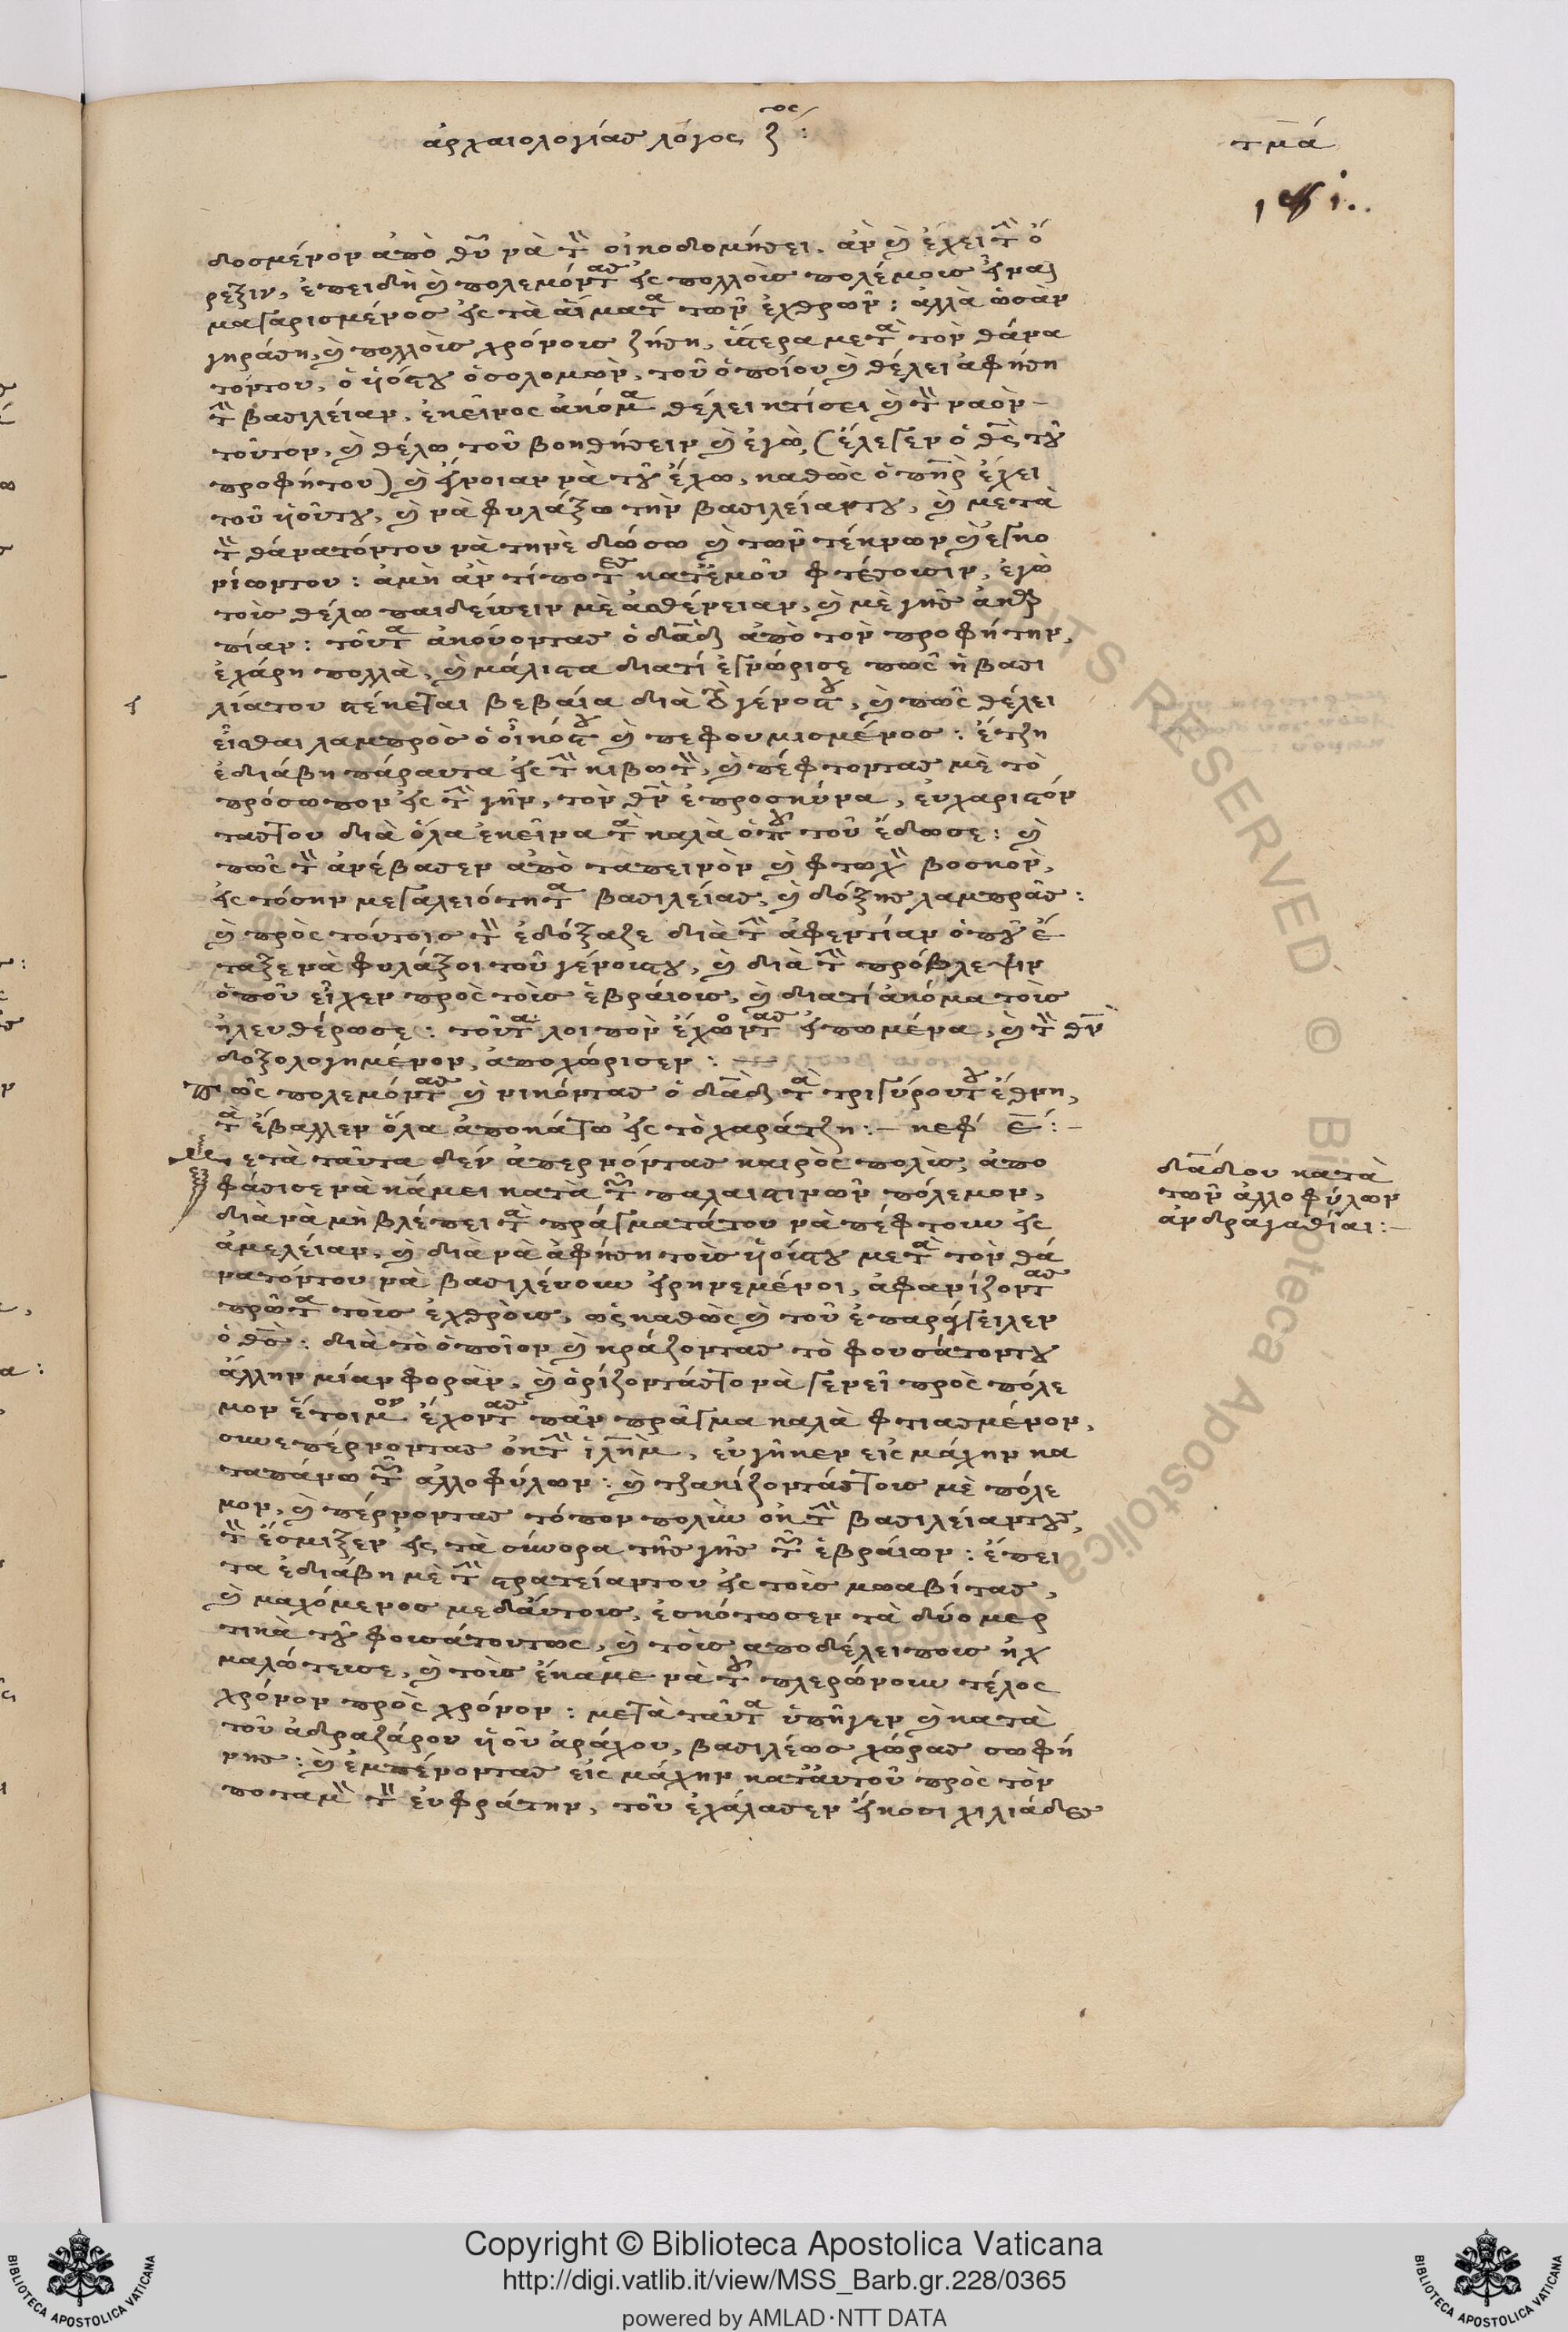 ἀρχαιολογίας λόγος ζ^ος :
τμα
δοσμένον ἀπὸ θῦ νὰ τὸν οἰκοδομήσει. ἂν καὶ ἔχει τὴν ὄ
ρεξιν, ἐπειδὴ καὶ πολεμόντας εἰς πολλοὺς πολέμους εἶναι
μαγαρισμένος εἰς τὰ αἵματα τῶν ἐχθρῶν : ἀλλὰ ὡσὰν
γηράσῃ, καὶ πολλοὺς χρόνους ζήσῃ, ὕστερα μετὰ τὸν θάνα
τόντου, ὁ ὑιόςτου ὁ σολομὼν, τοῦ ὁποίου καὶ θέλει ἀφήσῃ
τὴν βασιλείαν, ἐκεῖνος ἀκόμα θέλει κτίσει καὶ τὸν ναὸν
τοῦτον, καὶ θέλω τοῦ βοηθήσειν καὶ ἐγὼ, (ἔλεγεν ὁ θς τοῦ
προφήτου) καὶ ἔνοιαν νὰ τοῦ ἔχω, καθὼς ὁ πηρ ἔχει
τοῦ ὑιοῦτου, καὶ νὰ φυλάξω τὴν βασιλείαντου, καὶ μετὰ
τὸν θάνατόντου νὰ τηνὲ δώσω καὶ τῶν τέκνων καὶ ἐγκο
νίωντου : ἀμὴ ἂν τίποτες κατ' ἐμοῦ φτέσουσιν, ἐγὼ
τοὺς θέλω παιδεύσειν μὲ ἀσθένειαν, καὶ μὲ γῆς ἀκαρ
πίαν : τοῦτα ἀκούοντας ὁ δαδ ἀπὸ τὸν προφήτην,
ἐχάρη πολλὰ, καὶ μάλιστα διατὶ ἐγνώρισε πῶς ἡ βασι
λίατου στέκεται βεβαία διὰ τοῦ γένουςτου, καὶ πῶς θέλει
εἶσθαι λαμπρὸς ὁ οἶκόςτου καὶ πεφουμισμένος : ἔτζη
ἐδιάβη πάραυτα εἰς τὴν κιβωτὸν, καὶ πέφτοντας μὲ τὸ
πρόσωπον εἰς τὴν γῆν, τὸν θν ἐπροσκύνα, εὐχαριστόν
τας του διὰ ὅλα ἐκεῖνα τὰ καλὰ ὁποῦ τοῦ ἔδωσε : καὶ
πῶς τὸν ἀνέβασεν ἀπὸ ταπεινὸν καὶ φτωχὸν βοσκὸν,
εἰς τόσην μεγαλειότητα βασιλείας, καὶ δόξης λαμπρᾶς :
καὶ πρὸς τούτοις τὸν ἐδόξαζε διὰ τὴν ἀφεντίαν ὁποῦ ἔ
ταξε νὰ φυλάξοι τοῦ γένουςτου, καὶ διὰ τὴν πρόβλεψιν
ὁποῦ εἶχεν πρὸς τοὺς ἑβραίους, καὶ διατὶ ἀκόμα τοὺς
ἠλευθέρωσε : τοῦτα λοιπὸν ἔχωντας εἰπωμένα, καὶ τὸν θν
δοξολογημένον, ἀποχώρισεν :
πῶς πολεμόντας καὶ νικόντας ὁ δαδ τὰ τριγύρουτου ἔθνη,
τὰ ἔβαλλεν ὅλα ἀποκάτω εἰς τὸ χαράτζη :– κεφ ε :–
μετὰ ταῦτα δὲν ἀπερνόντας καιρὸς πολὺς, ἀπο
φάσισε νὰ κάμει κατὰ τῶν παλαιστινῶν πόλεμον,
διὰ νὰ μὴ βλέπει τὰ πράγματάτου νὰ πέφτουν εἰς
ἀμελείαν, καὶ διὰ νὰ ἀφήσῃ τοὺς ὑιούςτου μετὰ τὸν θά
νατόντου νὰ βασιλεύουν εἰρηνεμένοι, ἀφανίζοντας
πρῶτα τοὺς ἐχθροὺς, ὡς καθὼς καὶ τοῦ ἐπαράγγειλεν
ὁ θς : διὰ τὸ ὁποῖον καὶ κράζοντας τὸ φουσάτοντου
ἄλλην μίαν φορὰν, καὶ ὁρίζοντάς το νὰ γενεῖ πρὸς πόλε
μον ἕτοιμον ἔχοντας πᾶν πρᾶγμα καλὰ φτιασμένον,
συνεπέρνοντας ἐκ τὴν ἱλημ, εὐγῆκεν εἰς μάχην κα
ταπάνω τῶν ἀλλοφύλων : καὶ τζακίζοντάς τους μὲ πόλε
μον, καὶ πέρνοντας τόπον πολὺν ἐκ τὴν βασιλείαντους,
τὸν ἔσμιξεν εἰς τὰ σύνορα τῆς γῆς τῶν ἑβραίων : ἔπει
τα ἐδιάβη μὲ τὴν στρατείαντου εἰς τοὺς μωαβίτας,
καὶ μαχόμενος μεδαύτους, ἐσκότωσεν τὰ δύο μερ
τικὰ τοῦ φουσάτουτως, καὶ τοὺς αποδέλειπους ἠχ
μαλώτευσε, καὶ τοὺς ἔκαμε νὰ τοῦ πλερώνουν τέλος
χρόνον πρὸς χρόνον : μετὰ ταῦτα ὑπῆγεν καὶ κατὰ
τοῦ ἀδραζάρου ὑιοῦ ἀράχου, βασιλέως χώρας σωφή
νης : καὶ ἐμπένοντας εἰς μάχην κατ' αὐτοῦ πρὸς τὸν
ποταμὸν τὸν εὐφράτην, τοῦ ἐχάλασεν εἴκοσι χιλιάδες
δαδου κατὰ
τῶν ἀλλοφύλων
ἀνδραγαθίαι :–
Copyright © Biblioteca Apostolica Vaticana
http://digi.vatlib.it/view/MSS_Barb.gr.228/0365
powered by AMLAD·NTT DATA
BIBLIOTECA APOSTOLICA VATICANA
BIBLIOTECA APOSTOLICA VATICANA